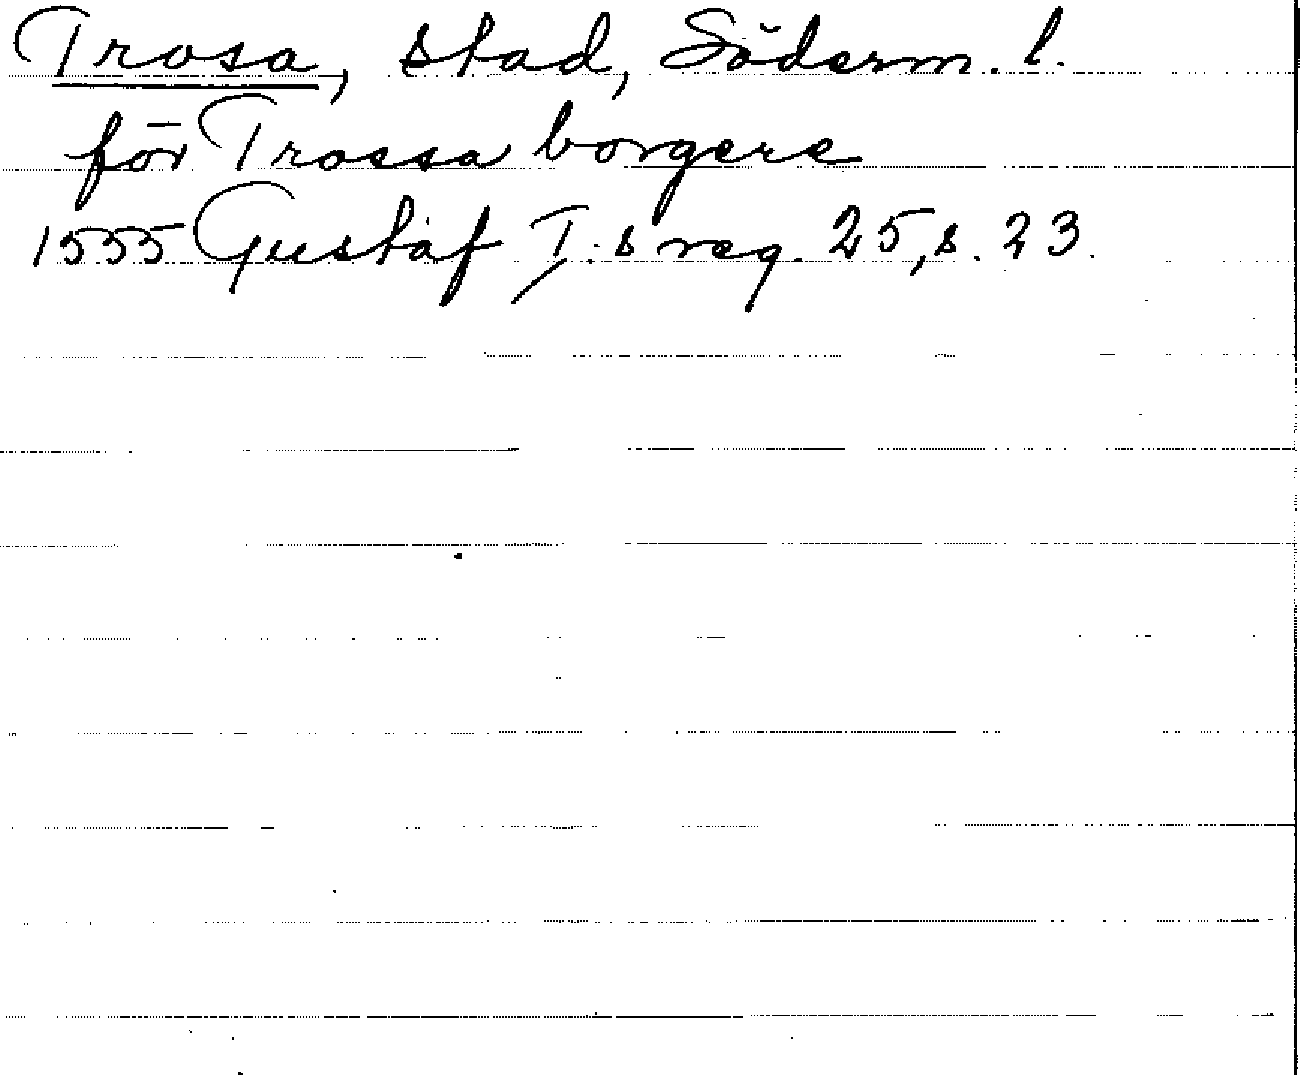 Trosa, stad, Söderm. l.
för Trossa borgere
1555 Gustaf I:s reg. 25, s. 23.